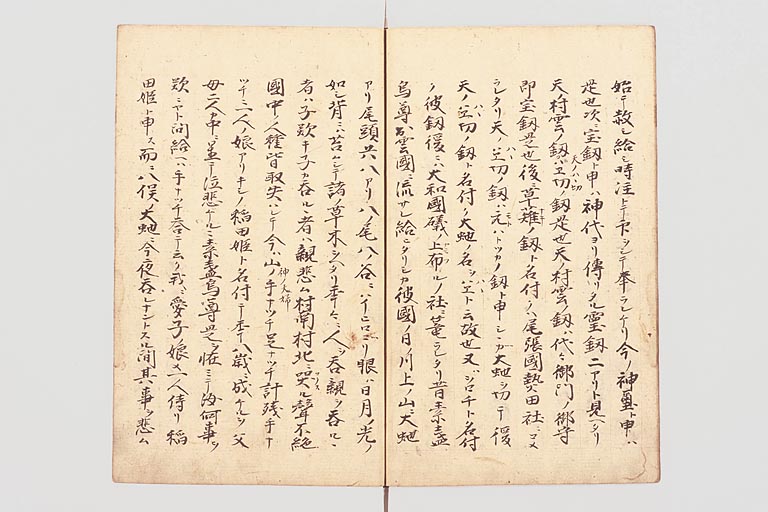 始テ殺シ給シ時注上下ヲシテ奉ラレケリ今ノ神璽ト申ハ
是也次ニ宝釼ト申ハ神代ヨリ傳ツタル霊釼二アリト見ヘタリ
天村雲ノ釼天ノハハ切ノ釼是也天村雲ノ釼ハ代々御門ノ御守
即宝釼是也後ニ草薙ノ釼ト名付ク尾張國熱田社ニコメ
ラレタリ天ノハハ切ノ釼ハ元ハトツカノ釼ト申シシカ大虵ヲ切テ後
天ノハハ切ノ釼ト名付ク大虵ノ名ヲハハト云故也又ハヲロチト名付
ク彼釼後ニハ大和國礒ノ上布ルノ社ニ篭ラレタリ昔素盞
烏尊出雲國ニ流サレ給ヒタリシカ彼國ノ日ノ川上ノ山ニ大虵
アリ尾頭共ニ八アリ八ノ尾八ノ谷ニハイヒロコリ眼ハ日月ノ光ノ
如シ背ニハ苔ムシテ諸ノ草木シケタリ年々ニ人ヲ呑親ヲ呑ルル
者ハ子歎キ子カ呑ルル者ハ親悲ム村南村北ニ哭スル聲不絶
國中ノ人種皆取失ハレテ今ハ山ノ神ノ夫婦手ナツチ足ナツチ計残手ナ
ツチ二人ノ娘アリキシノ稲田姫ト名付テ年八歳ニ成ケルヲ父
母二人カ中ニ置テ泣悲ケルニ素盞烏ノ尊是ヲ恠ミテ汝何事ヲ
歎ニヤト問給ヘハ手ナツチ答テ云ク我ニ愛子娘只一人侍リ稲
田姫ト申ス而ニ八俣ノ大虵ニ今夜呑レナントスル間其事ヲ悲ム